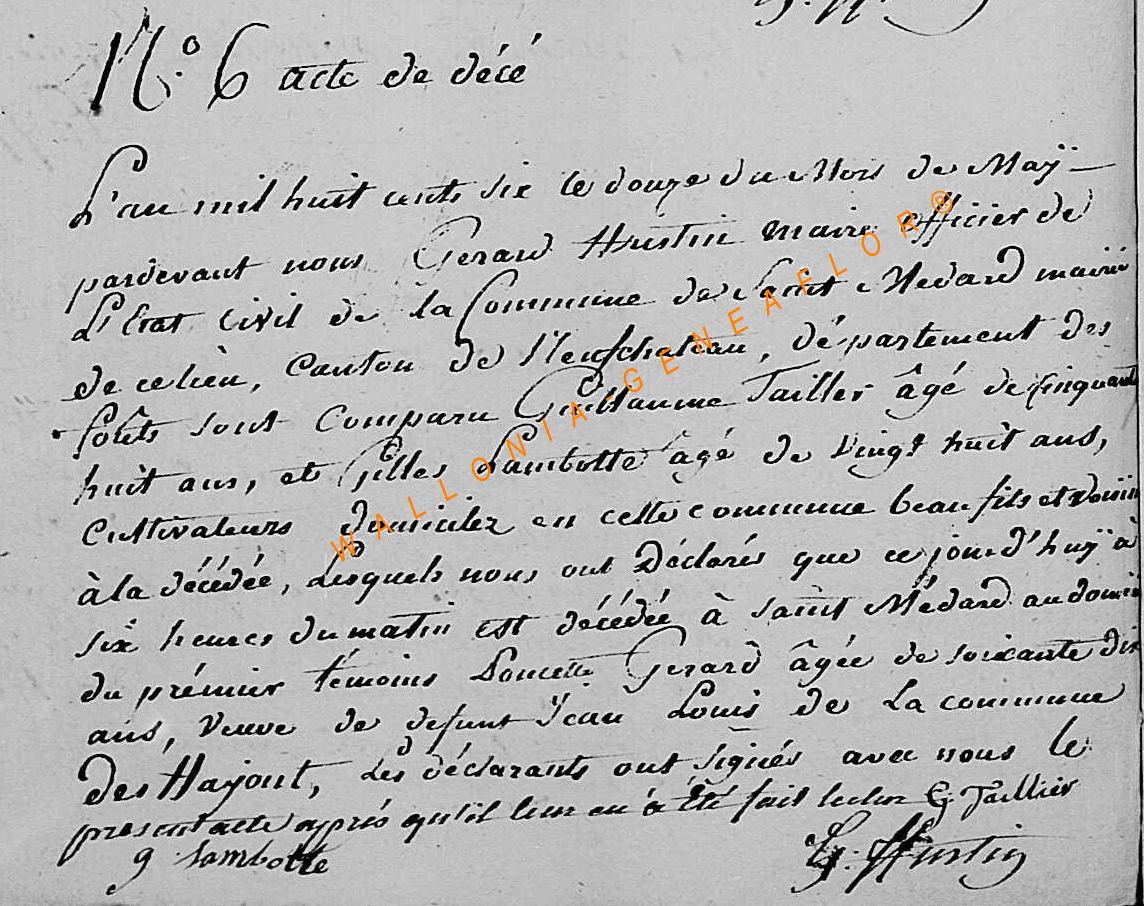 N.o 6 acte de décé
L'an mil huit cents six le douze du Mois de Maÿ —
pardevant nous Gerard Hustin maire officier de
L'Etat Civil de la Commune de Saint Medard mairie
de ce lieu, Canton de Neufchateau, département des
forêts sont Comparu Guillaume Tailler âgé de Cinquante
huit ans, et Gilles Lambotte âgé de vingt huit ans,
Cultivateurs domiciliez en cette commune beau fils et voisin
à la décédée, Lesquels nous ont Déclarés que ce jourd'huÿ à
six heures du matin est décédée à Saint Médard au domici
du prémier témoins Poncette Gerard âgée de soixante dix
ans, Veuve de defunt Jean Louis de La commune
Des Hayont, Les déclarants ont signés avec nous le
present acte après qu'il leur en a été fait lectur G Taillier
g Lambotte
G. Hustin
WALLONIA-GENEAFLOR®